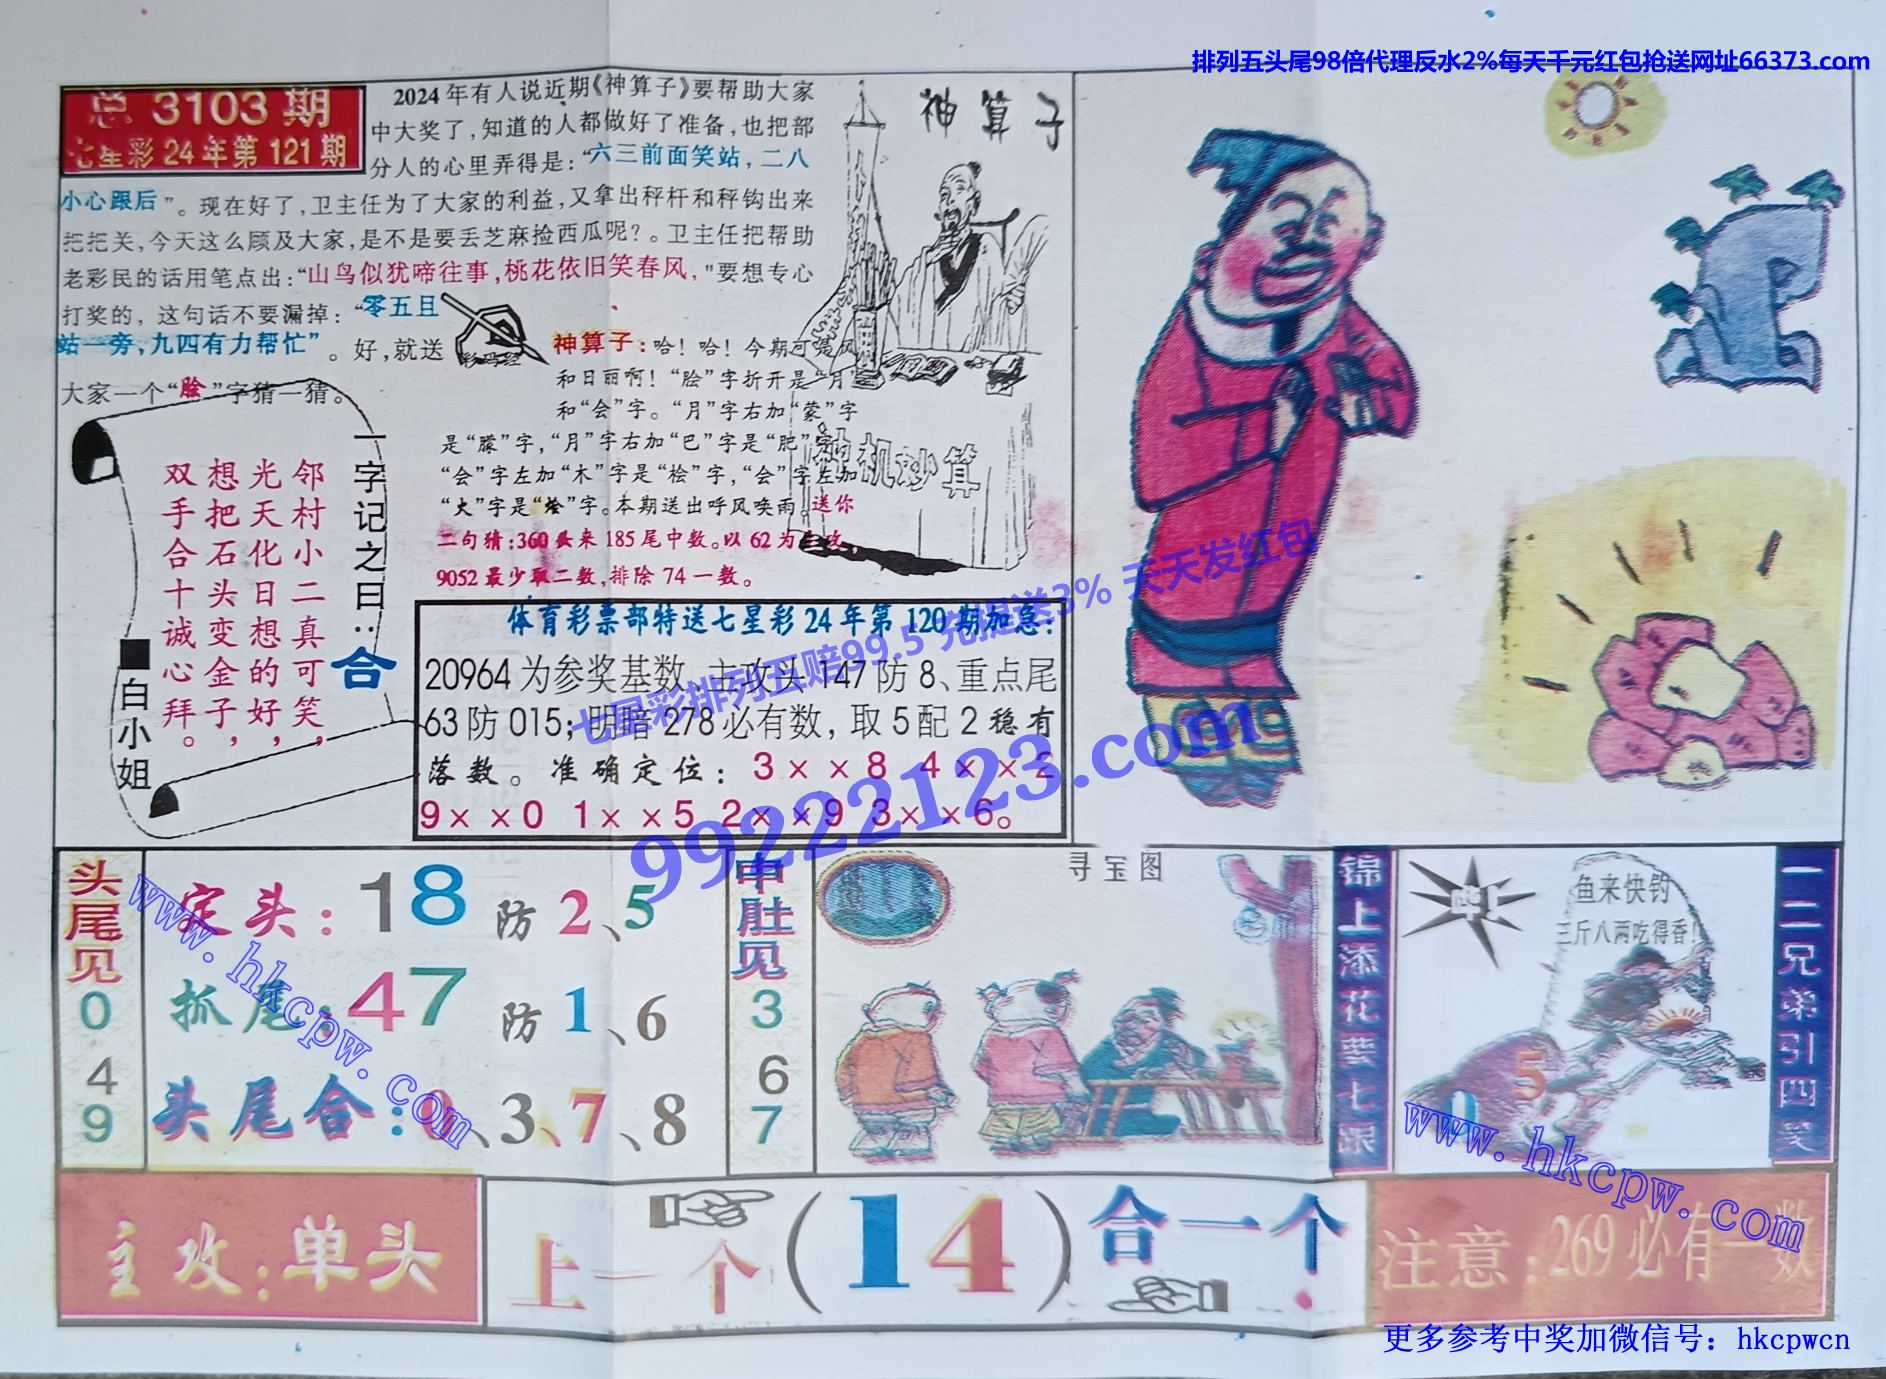 排列五头尾98倍代理反水2%每天千元红包抢送网址66373.com
总 3103 期
七星彩 24 年第 121 期
2024 年有人说近期《神算子》要帮助大家
中大奖了，知道的人都做好了准备，也把部
分人的心里弄得是：“六三前面笑站，二八
小心跟后”。现在好了，卫主任为了大家的利益，又拿出秤杆和秤钩出来
把把关，今天这么顾及大家，是不是要丢芝麻捡西瓜呢？。卫主任把帮助
老彩民的话用笔点出：“山鸟似犹啼往事，桃花依旧笑春风，”要想专心
打奖的，这句话不要漏掉：“零五且
站一旁，九四有力帮忙”。好，就送
大家一个“脍”字猜一猜。
神算子
神算子：哈！哈！今期可是风
和日丽啊！“脍”字折开是“月”
和“会”字。“月”字右加“蒙”字
是“朦”字，“月”字右加“巴”字是“肥”字
“会”字左加“木”字是“桧”字，“会”字左加
“火”字是“烩”字。本期送出呼风唤雨。送你
二句猜：360 头来 185 尾中数。以 62 为主攻，
9052 最少取二数，排除 74 一数。
神机妙算
一字记之曰：合
邻村小二真可笑，
光天化日想的好，
想把石头变金子，
双手合十诚心拜。
■白小姐
体育彩票部特送七星彩 24 年第 120 期加急：
20964 为参奖基数，主攻头 147 防 8、重点尾
63 防 015；明暗 278 必有数，取 5 配 2 稳有
落数。准确定位：3××8 4××2
9××0 1××5 2××9 3××6。
七星彩排列五赔99.5 充提送3% 天天发红包
99222123.com
头尾见
0
4
9
定头：18 防 2、5
抓尾：47 防 1、6
头尾合：0、3、7、8
www.hkcpw.com
中肚见
3
6
7
寻宝图
锦上添花要七跟
鱼来快钓
三斤八两吃得香！
0 5
一二兄弟引四笑
www.hkcpw.com
主攻：单头
上一个（14）合一个
注意：269 必有一数
更多参考中奖加微信号：hkcpwcn